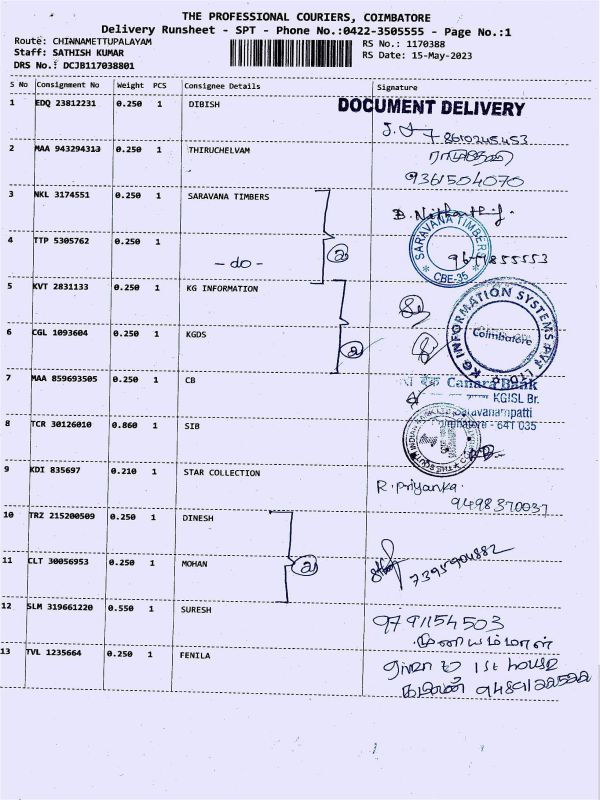 THE PROFESSIONAL COURIERS, COIMBATORE
Delivery Runsheet - SPT - Phone No.:0422-3505555 - Page No.:1
Route: CHINNAMETTUPALAYAM
Staff: SATHISH KUMAR
DRS No.: DCJB117038801
RS No.: 1170388
RS Date: 15-May-2023
S No Consignment No Weight PCS Consignee Details Signature
DOCUMENT DELIVERY
1 EDQ 23812231 0.250 1 DIBISH
8610245453
2 MAA 943294313 0.250 1 THIRUCHELVAM
9361504070
3 NKL 3174551 0.250 1 SARAVANA TIMBERS
SARAVANA TIMBERS
CBE-35
4 TTP 5305762 0.250 1
- do - 2
5 KVT 2831133 0.250 1 KG INFORMATION
KG INFORMATION SYSTEMS PVT LTD
Coimbatore
6 CGL 1093604 0.250 1 KGDS
2
7 MAA 859693505 0.250 1 CB
बैंक Canara Bank
KGISL Br.
Saravanampatti
Coimbatore - 641 035
8 TCR 30126010 0.860 1 SIB
9 KDI 835697 0.210 1 STAR COLLECTION
R. Priyanka.
9498370037
10 TRZ 215200509 0.250 1 DINESH
11 CLT 30056953 0.250 1 MOHAN 2
7395904882
12 SLM 319661220 0.550 1 SURESH
9791154503
முனியம்மாள்
13 TVL 1235664 0.250 1 FENILA
1st house